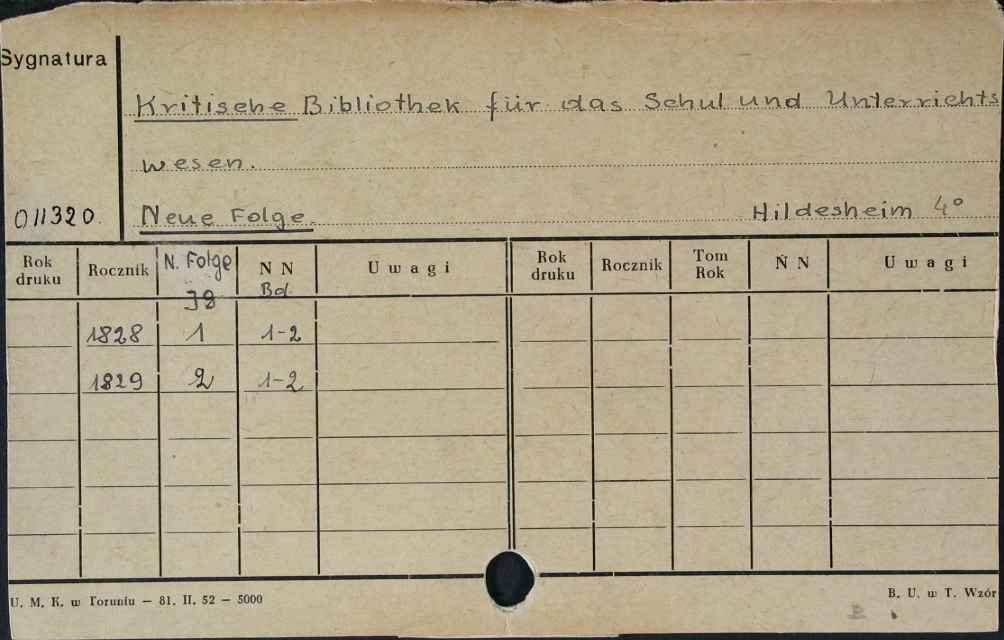 Sygnatura
Kritische Bibliothek für das Schul und Unterrichts
wesen.
011320. Neue Folge. Hildesheim 4°
Rok druku Rocznik N. Folge Jg N N Bd. Uwagi Rok druku Rocznik Tom Rok N N Uwagi
1828 1 1-2
1829 2 1-2
U. M. K. w Toruniu — 81. II. 52 — 5000 B. U. w T. Wzór